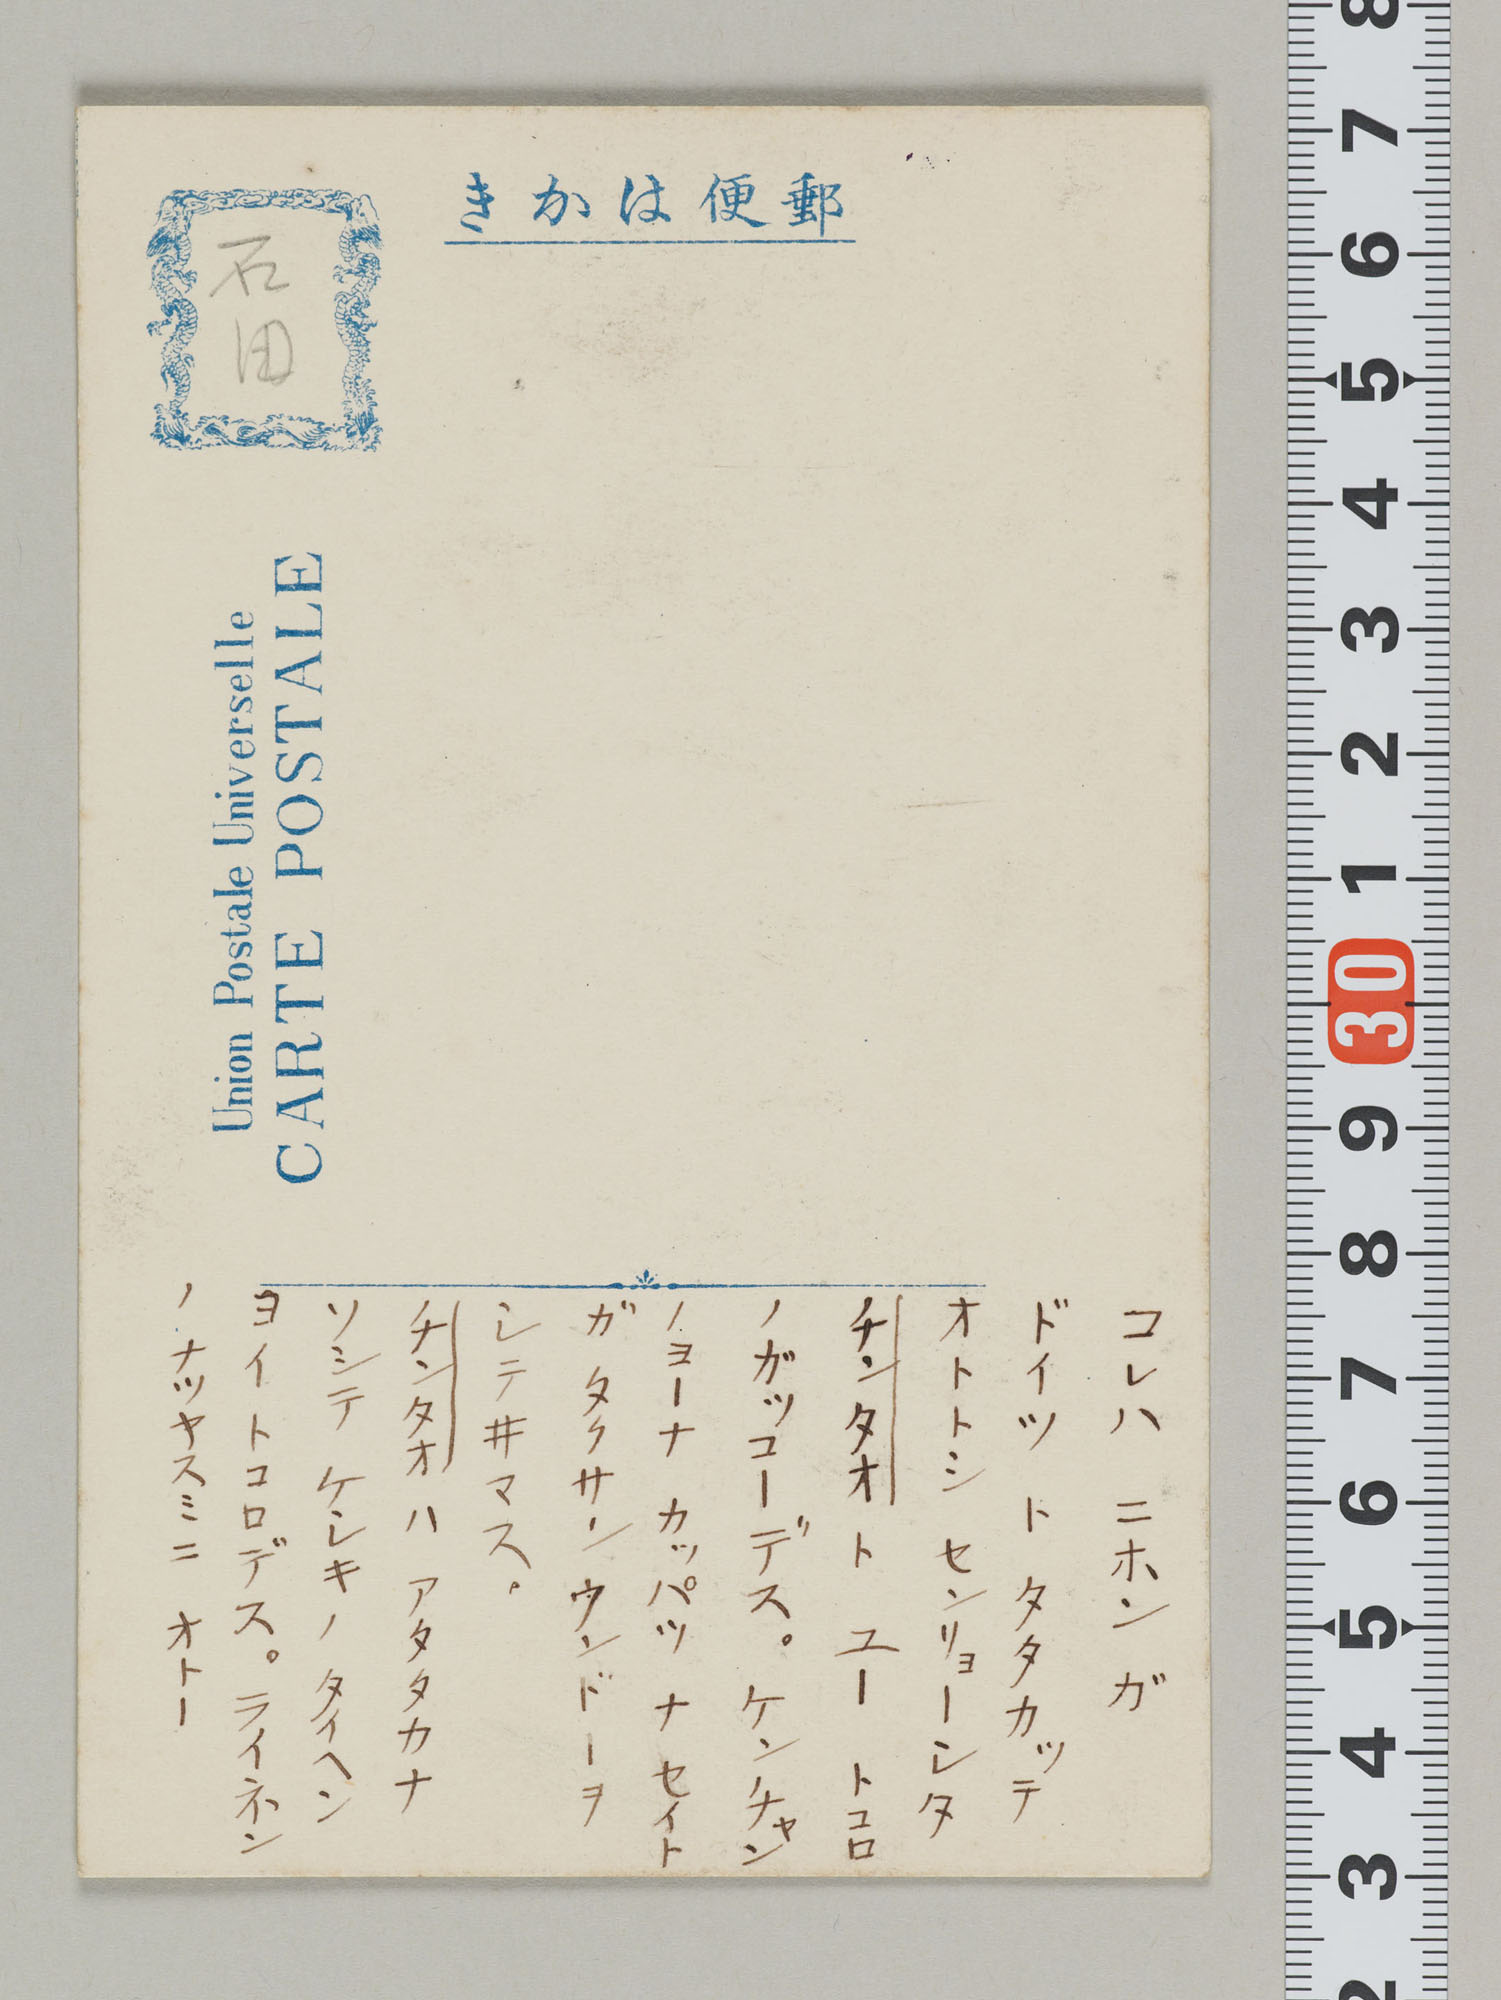 郵便はかき
石田
Union Postale Universelle
CARTE POSTALE
コレハ ニホンガ
ドイツ ト タタカッテ
オトトシ センリョーシタ
チンタオ ト ユー トコロ
ノガッコーデス。ケンチャン
ノヨーナ カッパツナ セイト
ガ タクサン ウンドーヲ
シテ井マス。
チンタオ ハ アタタカナ
ソシテ ケシキノ タイヘン
ヨイトコロデス。ライネン
ノナツヤスミニ オトー
8
7
6
5
4
3
2
1
30
9
8
7
6
5
4
3
2